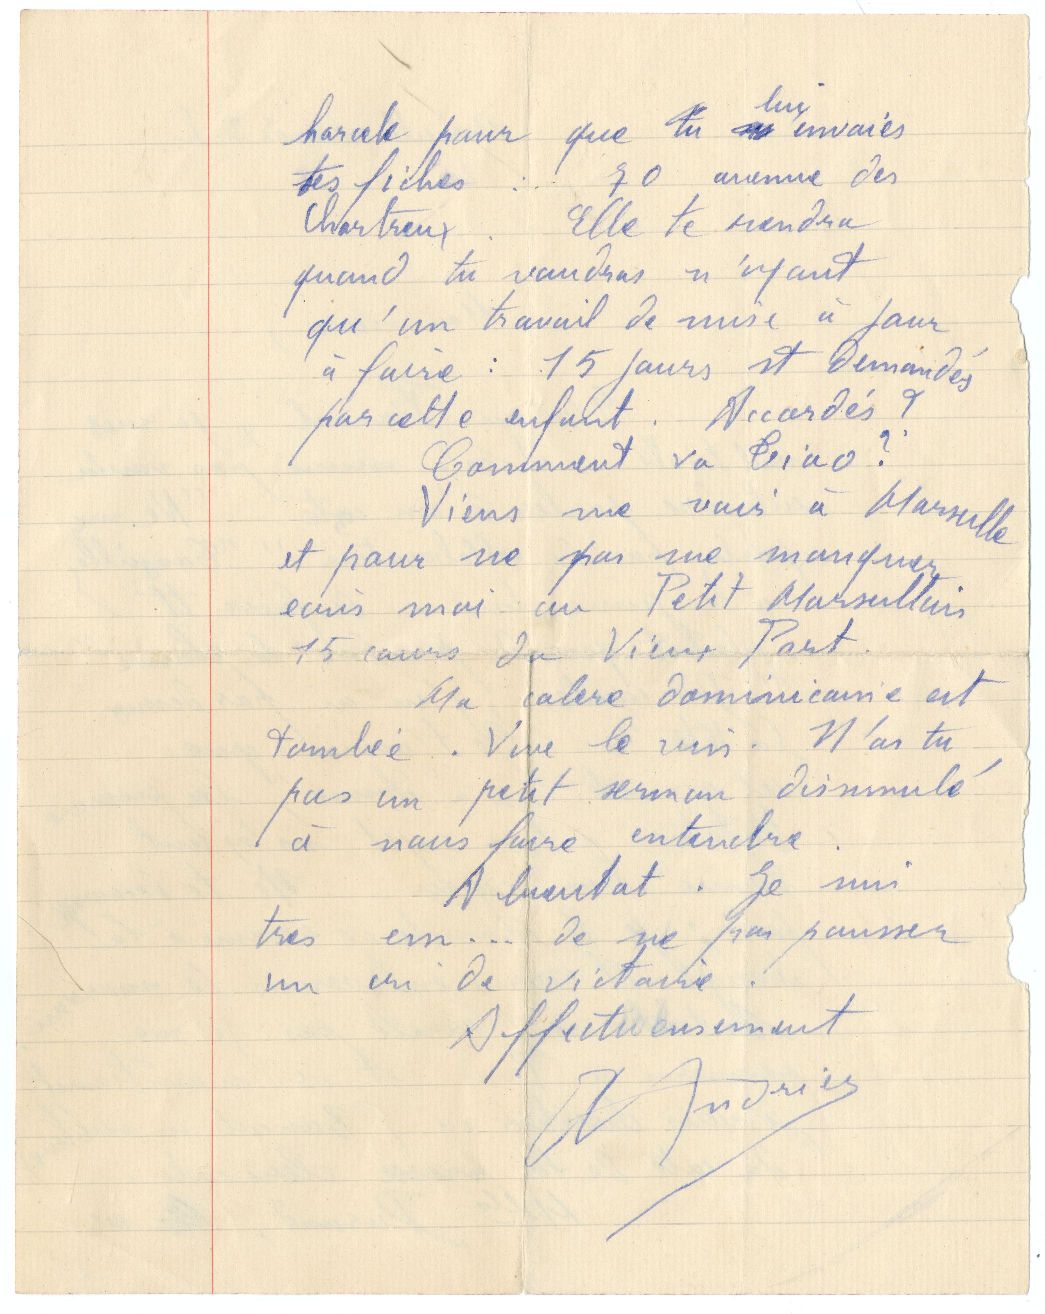 harcele pour que tu lui envoies
tes fiches : 70 avenue des
Chartreux. Elle te rendra
quand tu voudras n'ayant
qu'un travail de mise à jour
à faire : 15 jours st demandés
par cette enfant. Accordés ?
Comment va Ciao ?
Viens me voir à Marseille
et pour ne pas me manquer
ecris moi au Petit Marseillais
15 cours du Vieux Port.
Ma colere dominicaine est
tombée. Vive le vin. N'as tu
pas un petit sermon dissimulé
à nous faire entendre.
A bientot. Je suis
tres em... de ne pas pousser
un cri de victoire.
Affectueusement
Andrieu